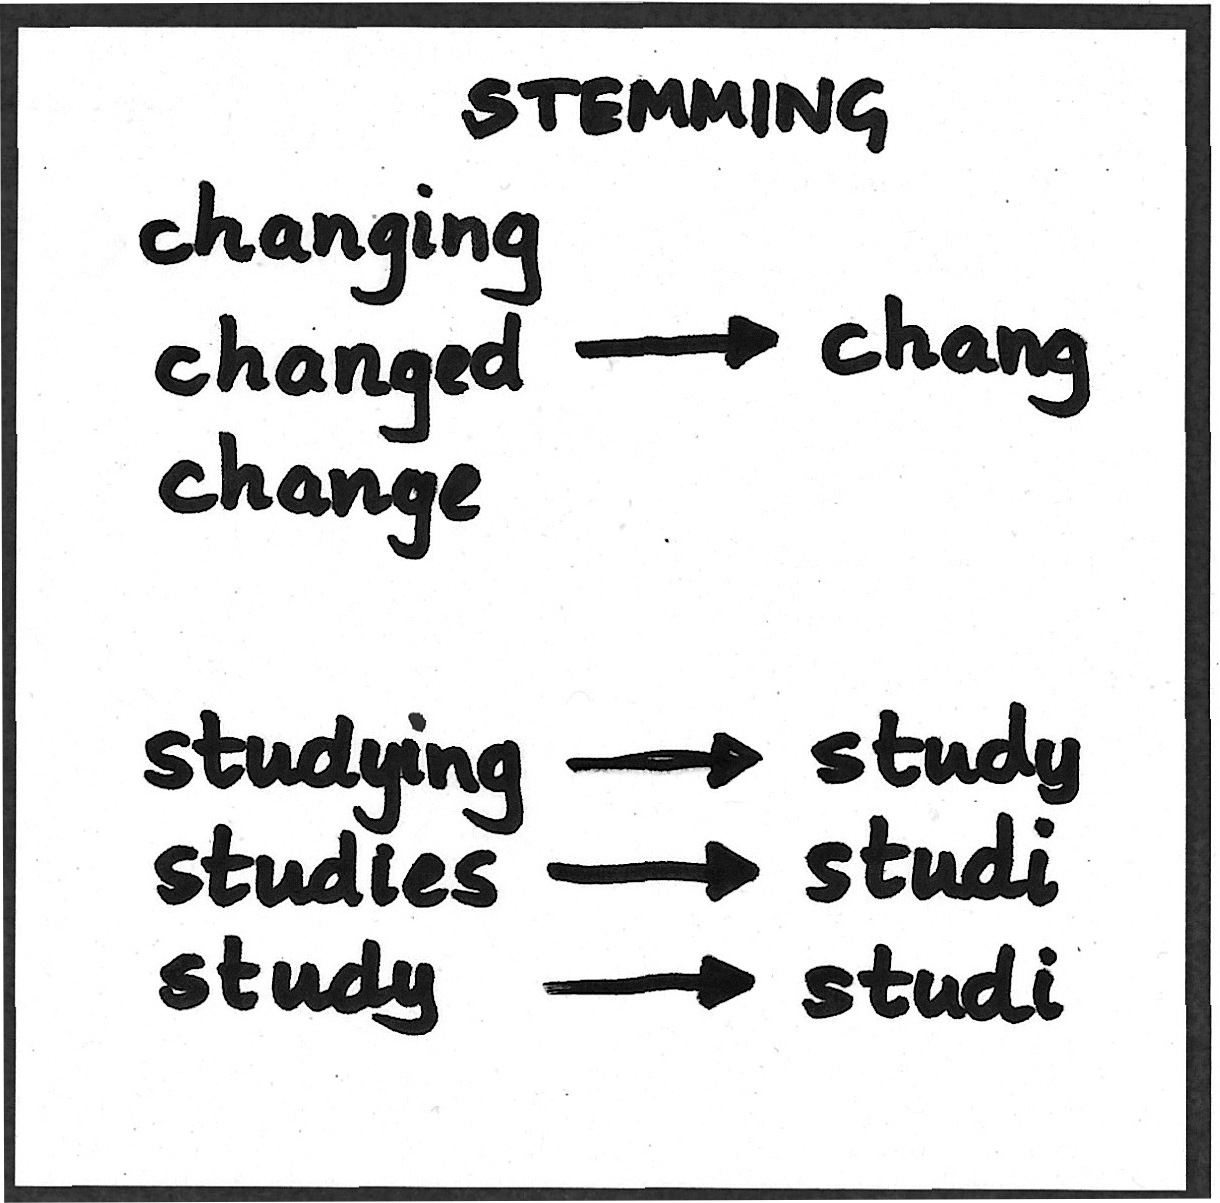 STEMMING
changing
changed → chang
change
studying → study
studies → studi
study → studi